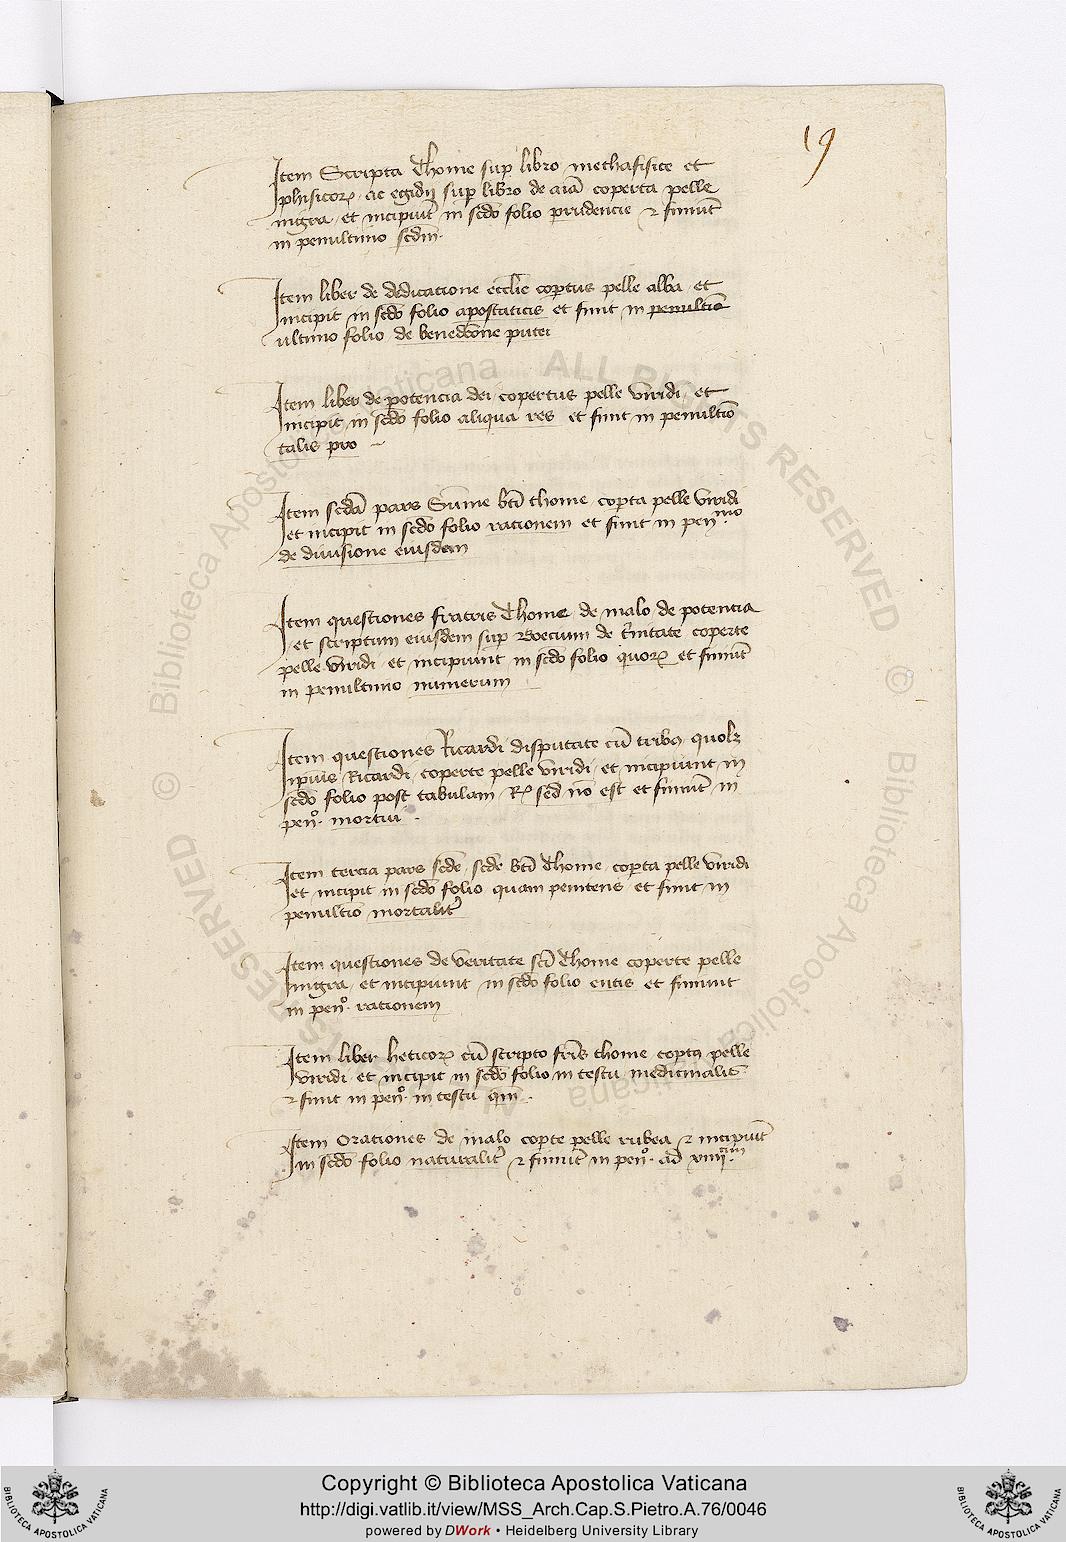 19
Item Scripta Thome sup libro methafisice et
phisicorꝝ ac egidij sup libro de aīa coperta pelle
nigra et incipiūt in scdo folio prudencie ⁊ finiūt
in penultimo scdm̄.
Item liber de dedicatione ecclīe coptus pelle alba et
incipit in scdo folio apostaticis et finit in penultīo
ultimo folio de benedcōne putei
Item liber de potencia dei copertus pelle viridi et
incipit in scdo folio aliqua res et finit in penultīo
talis pro
Item scdā pars Sūme btī thome copta pelle viridi
et incipit in scdo folio rationem et finit in penᵐᵒ.
de diuisione eiusdem
Item questiones fratris Thome de malo de potencia
et scriptum eiusdem sup Boecium de trinitate coperte
pelle viridi et incipiunt in scdo folio quorꝝ et finiūt
in penultimo numerum
Item questiones Ricardi disputate cū tribꝫ quolꝫ
ipsius Ricardi coperte pelle viridi et incipiunt in
scdo folio post tabulam Rꝰ sed nō est et finiūt in
penº. mortui .
Item tercia pars scde scde btī Thome copta pelle viridi
et incipit in scdo folio quam penitens et finit in
penultīo mortalitʳ
Item questiones de veritate scī Thome coperte pelle
nigra et incipiunt in scdo folio entis et finiunt
in penº. rationem
Item liber heticorꝝ cū scripto frīs thome coptꝰ pelle
viridi et incipit in scdo folio in testu medicinalit
⁊ finit in penº. in testu qm̄ .
Item Orationes de malo copte pelle rubea ⁊ incipiūt
in scdo folio naturalitʳ ⁊ finiūt in penº. ad xiiijᶜⁱᵐ.
© Biblioteca Apostolica Vaticana ALL RIGHTS RESERVED
© Biblioteca Apostolica Vaticana ALL RIGHTS RESERVED
BIBLIOTECA APOSTOLICA VATICANA
Copyright © Biblioteca Apostolica Vaticana
http://digi.vatlib.it/view/MSS_Arch.Cap.S.Pietro.A.76/0046
powered by DWork • Heidelberg University Library
BIBLIOTECA APOSTOLICA VATICANA